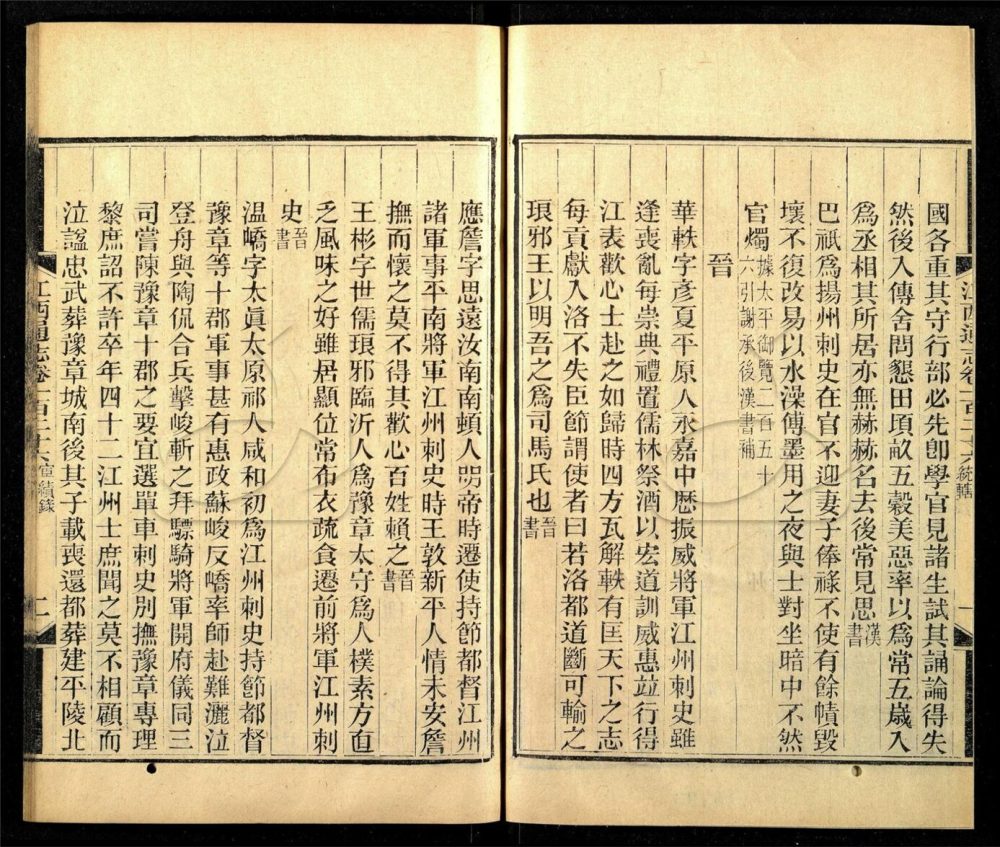 國各重其守行部必先卽學官見諸生試其誦論得失
然後入傳舍問懇田頃畝五穀美惡率以爲常五歲入
爲丞相其所居亦無赫赫名去後常見思漢書
巴祇爲揚州刺史在官不迎妻子俸祿不使有餘幘毀
壞不復改易以水澡傅墨用之夜與士對坐暗中不然
官燭據太平御覽二百五十六引謝承後漢書補
晉
華軼字彥夏平原人永嘉中歷振威將軍江州刺史雖
逢喪亂每崇典禮置儒林祭酒以宏道訓威惠竝行得
江表歡心士赴之如歸時四方瓦解軼有匡天下之志
每貢獻入洛不失臣節謂使者曰若洛都道斷可輸之
琅邪王以明吾之爲司馬氏也晉書
應詹字思遠汝南南頓人明帝時遷使持節都督江州
諸軍事平南將軍江州刺史時王敦新平人情未安詹
撫而懷之莫不得其歡心百姓賴之晉書
王彬字世儒琅邪臨沂人爲豫章太守爲人樸素方直
乏風味之好雖居顯位常布衣疏食遷前將軍江州刺
史晉書
温嶠字太眞太原祁人咸和初爲江州刺史持節都督
豫章等十郡軍事甚有惠政蘇峻反嶠率師赴難灑泣
登舟與陶侃合兵擊峻斬之拜驃騎將軍開府儀同三
司嘗陳豫章十郡之要宜選單車刺史別撫豫章專理
黎庶詔不許卒年四十二江州士庶聞之莫不相顧而
泣諡忠武葬豫章城南後其子載喪還都葬建平陵北
江西通志卷一百二十六宦績錄 二